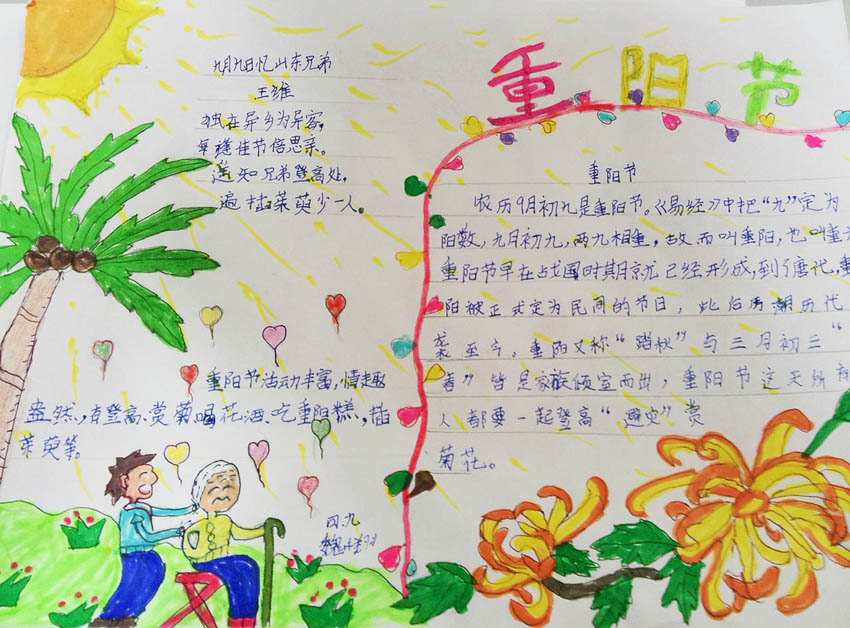 重阳节
九月九日忆山东兄弟
王维
独在异乡为异客,
每逢佳节倍思亲。
遥知兄弟登高处,
遍插茱萸少一人。
重阳节活动丰富,情趣
盎然,有登高、赏菊、喝花酒、吃重阳糕、插
茱萸等。
四.九
重阳节
农历9月初九是重阳节。《易经》中把“九”定为
阳数,九月初九,两九相重,故而叫重阳,也叫重
重阳节早在战国时期就已经形成,到了唐代,重
阳被正式定为民间的节日,此后历朝历代
袭至今。重阳又称“踏秋”与三月初三“
春”皆是家族倾室而出,重阳节这天所有
人都要一起登高“避灾”赏
菊花。